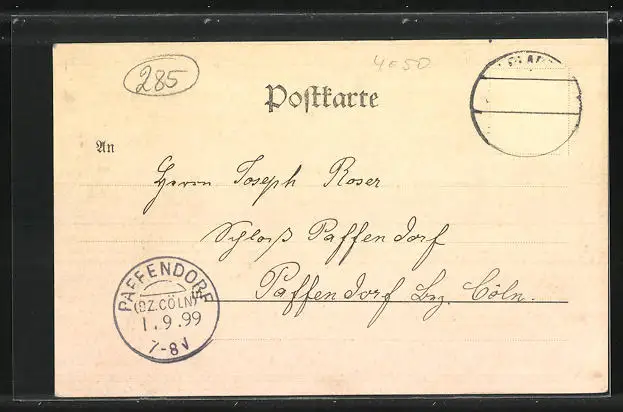 285
4050
Postkarte
An
Herrn Joseph Roser
Schloß Paffendorf
in Paffendorf Bez. Cöln.
PAFFENDORF
(BZ. CÖLN)
1.9.99
7-8V